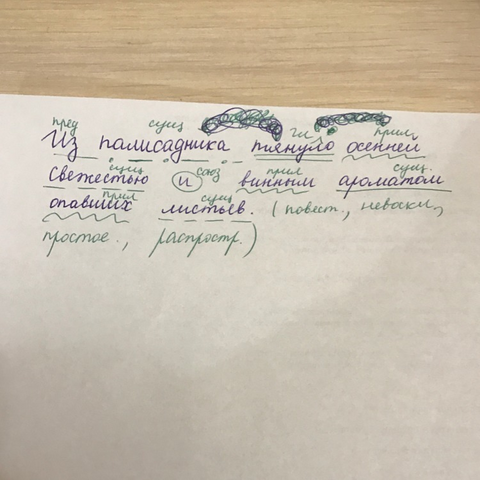 пред сущ гл прил
Из палисадника тянуло осенней
сущ союз прил сущ.
свежестью и винным ароматом
прил сущ
опавших листьев. (повест., невоскл,
простое., распростр.)